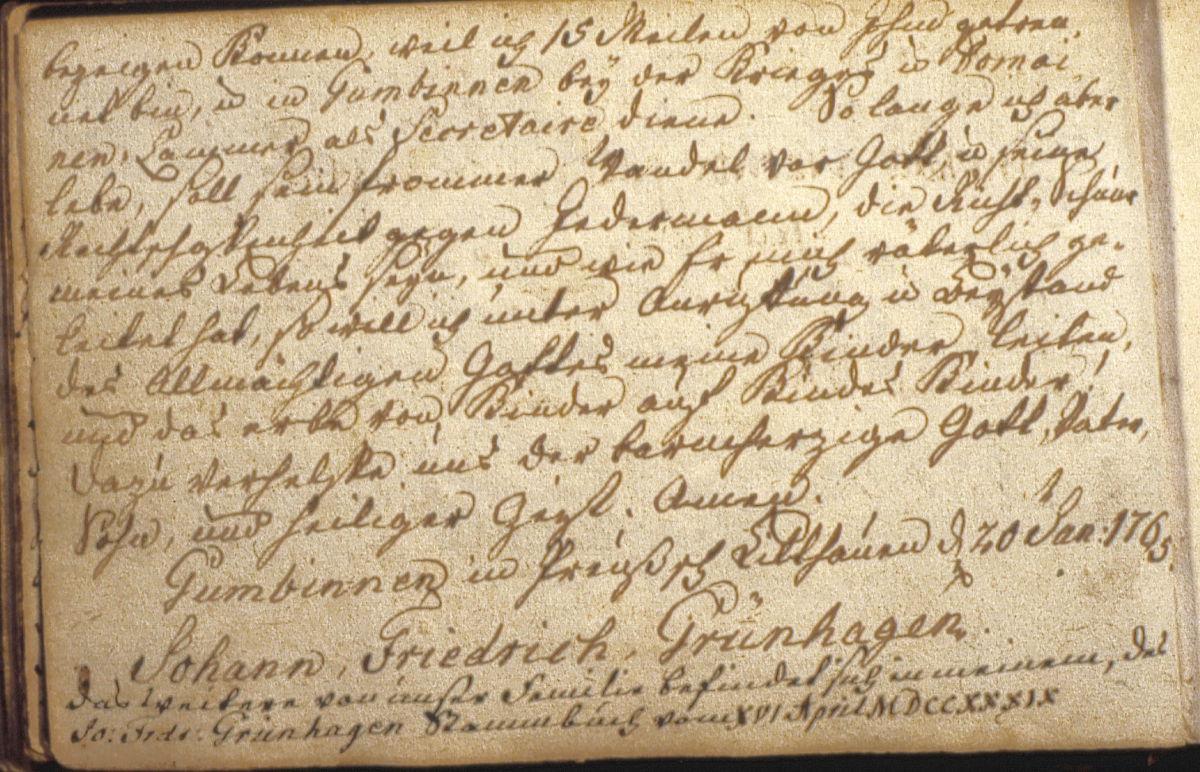 bezeigen können, weil ich 15 Meilen von Ihm getren,
net bin, u in Gumbinnen beÿ der Kriegs u Domai,
nen, Cammer als Secretaire diene. So lange ich aber
lebe, soll sein frommer Wandel vor Gott, u seine
Rechtschafenheit gegen Jedermann, die Richt, Schnur
meines Lebens seyn, und wie Er mich väterlich ge,
leitet hat, so will ich unter Anrichtung u Beÿstand
des Allmächtigen Gottes meine Kinder leiten,
und das erbe von Kinder auf Kindes Kinder!
Dazu verhelffe uns der barmherzige Gott, Vater,
Sohn, und heiliger Geist. Amen.
Gumbinnen in Preuß͏sch Litthauen d 20 Jan: 1765.
Johann, Friedrich, Grünhagen.
das weitere von unsrer Familie befindet sich in meinem, des
Jo: Frdr: Grünhagen Stammbuch vom XVI April MDCCXXXIX